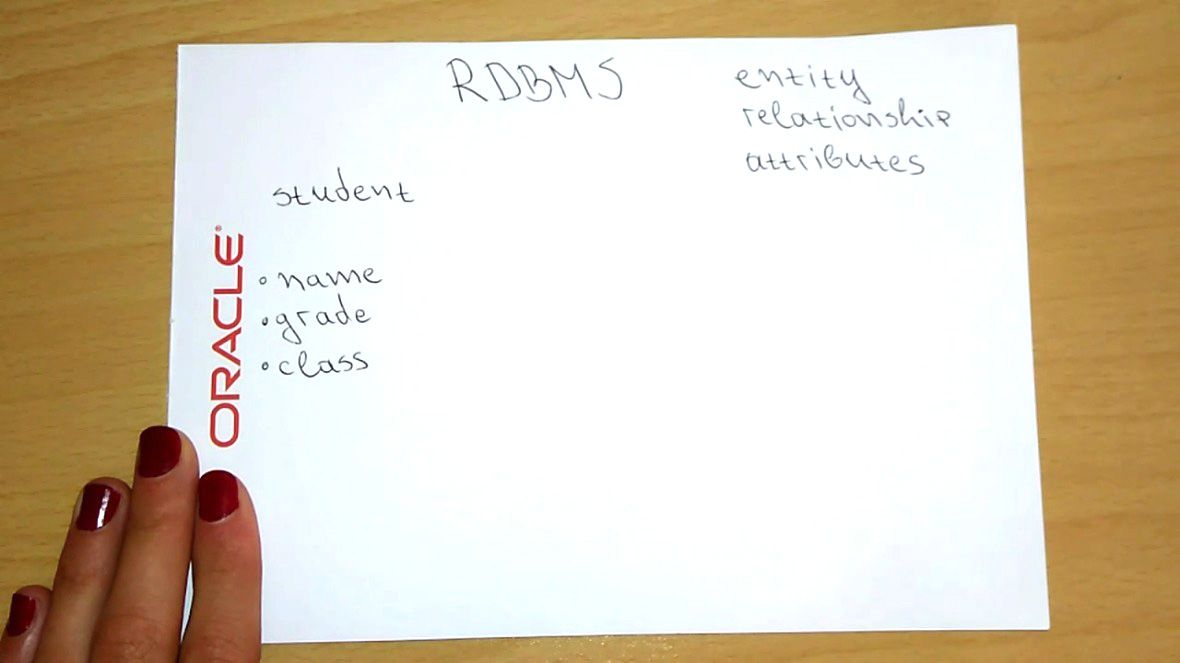 RDBMS
entity
relationship
attributes
student
• name
• grade
• class
ORACLE®